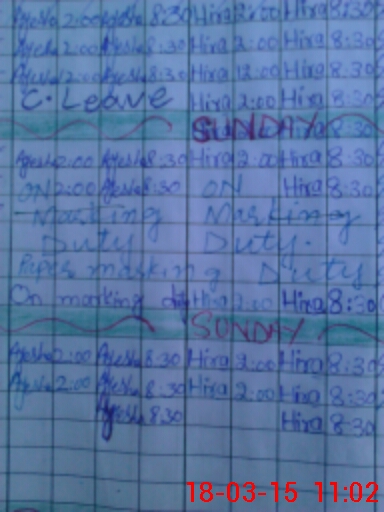 Ayesha 2:00 Ayesha 8:30 Hira 2:00 Hira 8:30
Ayesha 2:00 Ayesha 8:30 Hira 2:00 Hira 8:30
Ayesha 2:00 Ayesha 8:30 Hira 12:00 Hira 8:30
C. Leave Hira 2:00 Hira 8:30
SUNDAY Hira 8:30
Ayesha 2:00 Ayesha 8:30 Hira 2:00 Hira 8:30
ON 2:00 Ayesha 8:30 ON Hira 8:30
Marking Marking
Duty Duty.
Paper marking Duty
On marking duty Hira 2:00 Hira 8:30
SUNDAY
Ayesha 2:00 Ayesha 8:30 Hira 2:00 Hira 8:30
Ayesha 2:00 Ayesha 8:30 Hira 2:00 Hira 8:30
Ayesha 8:30 Hira 8:30
18-03-15 11:02